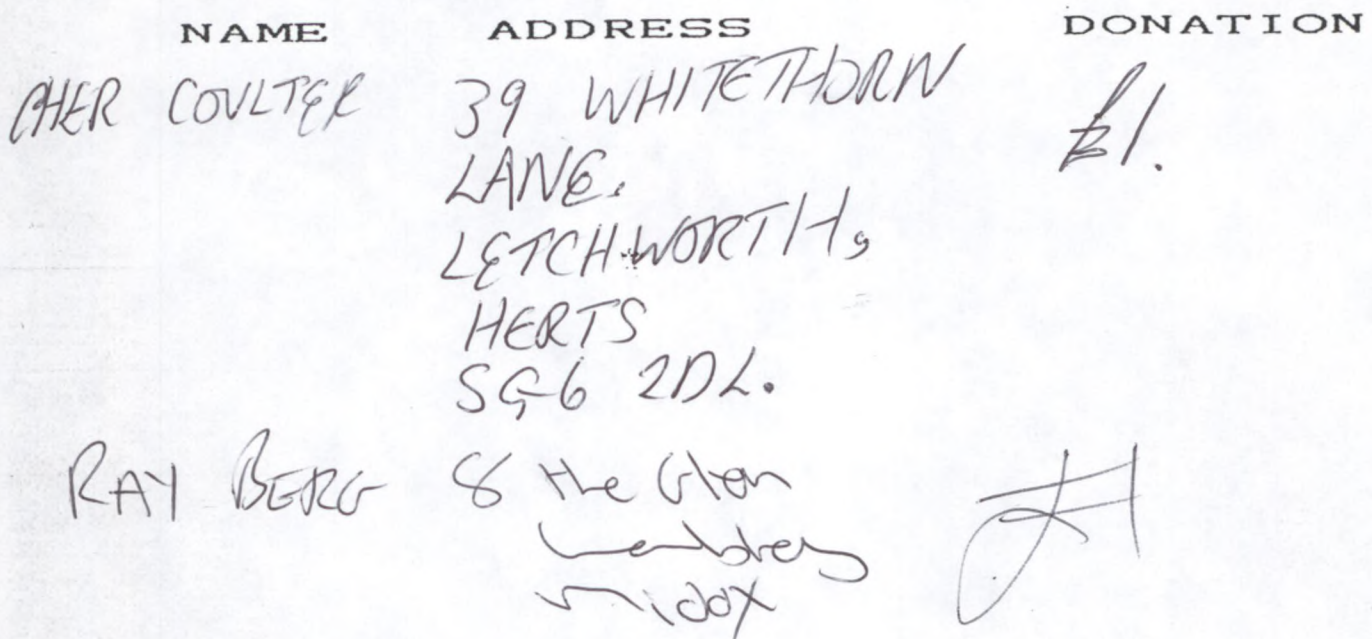 NAME ADDRESS DONATION
CHER COULTER 39 WHITETHORN £1.
LANE.
LETCHWORTH,
HERTS
SG6 2DL.
RAY BERG 8 The Glen £1
Wembley
Middx